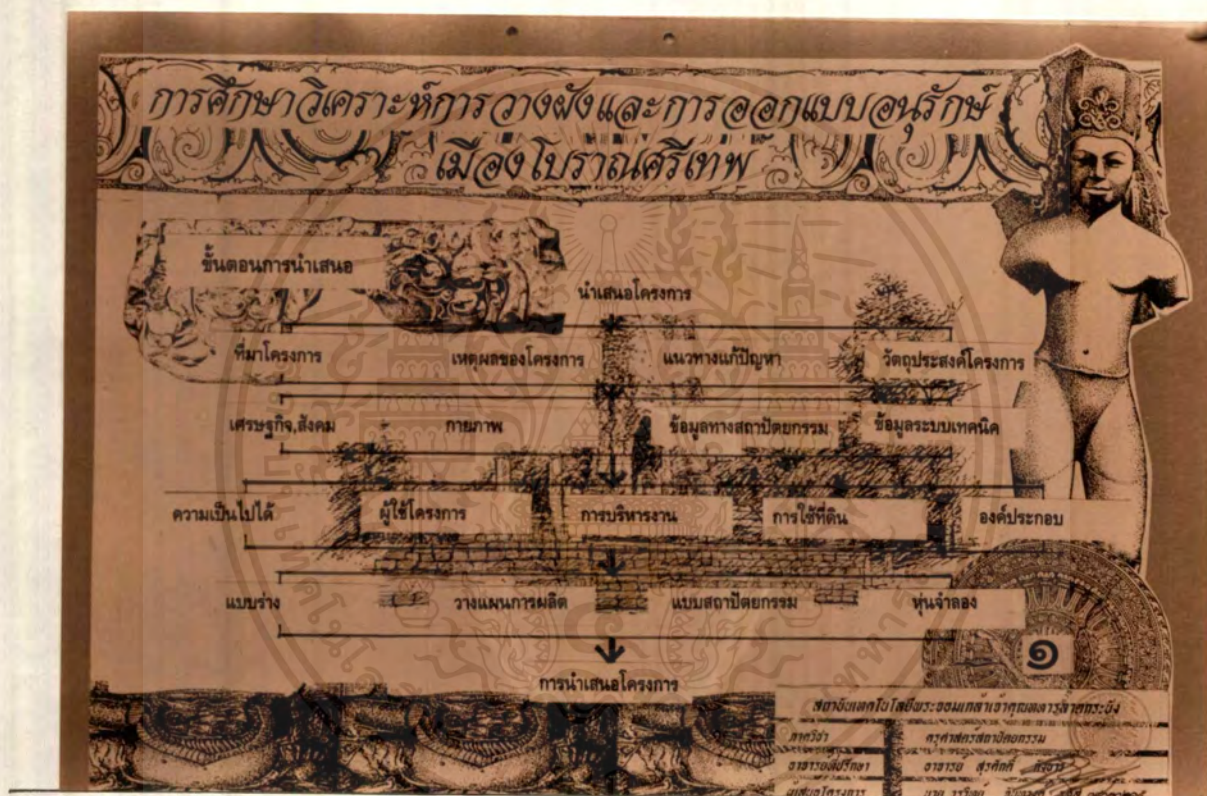 การศึกษาวิเคราะห์การวางผังและการออกแบบอนุรักษ์
เมืองโบราณศรีเทพ
ขั้นตอนการนำเสนอ
นำเสนอโครงการ
ที่มาโครงการ เหตุผลของโครงการ แนวทางแก้ปัญหา วัตถุประสงค์โครงการ
เศรษฐกิจ,สังคม กายภาพ ข้อมูลทางสถาปัตยกรรม ข้อมูลระบบเทคนิค
ความเป็นไปได้ ผู้ใช้โครงการ การบริหารงาน การใช้ที่ดิน องค์ประกอบ
แบบร่าง วางแผนการผลิต แบบสถาปัตยกรรม หุ่นจำลอง
๑
การนำเสนอโครงการ
สถาบันเทคโนโลยีพระจอมเกล้าเจ้าคุณทหารลาดกระบัง
ภาควิชา ครุศาสตร์สถาปัตยกรรม
อาจารย์ที่ปรึกษา อาจารย์ สุรศักดิ์
ผู้เสนอโครงการ นาย